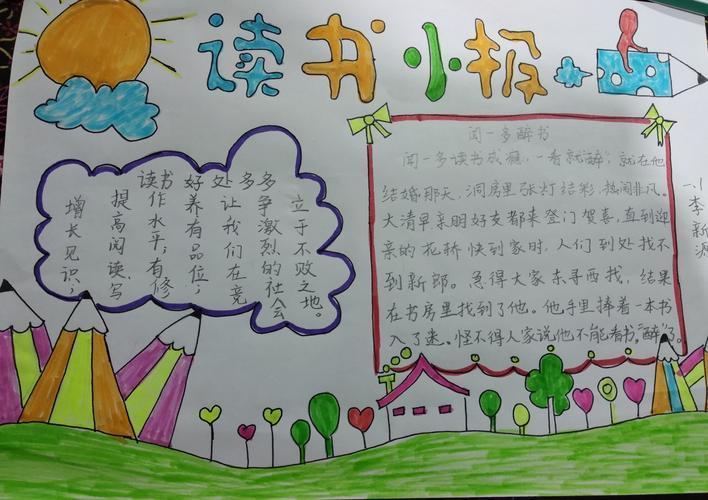 读书小报
读书好处多多
增长见识，
提高阅读、写
作水平，有修
养有品位；
让我们在竞
争激烈的社会
立于不败之地。
闻一多醉书
闻一多读书成瘾，一看就“醉”，就在他
结婚那天，洞房里张灯结彩，热闹非凡。
大清早亲朋好友都来登门贺喜，直到迎
亲的花轿快到家时，人们到处找不
到新郎。急得大家东寻西找，结果
在书房里找到了他。他手里捧着一本书
入了迷。怪不得人家说他不能看书，“醉”了。
一.1
李新源